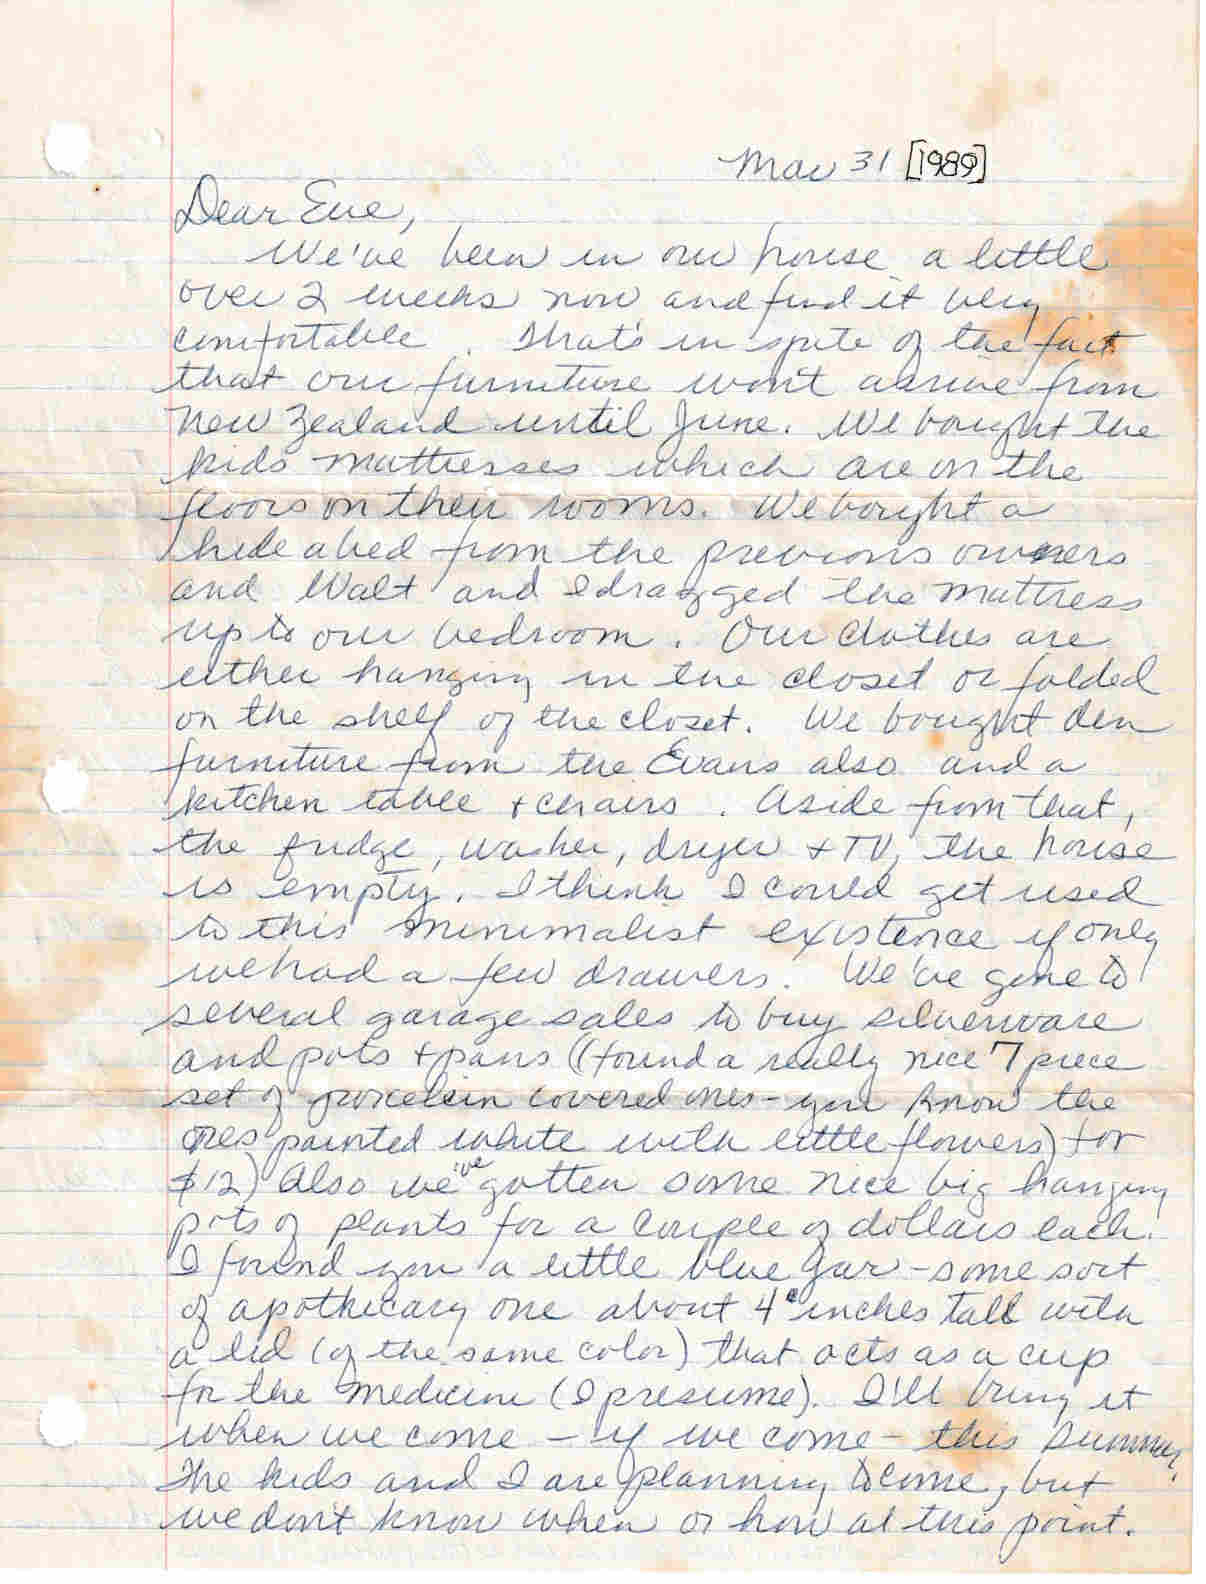 Mar 31 [1989]
Dear Eve,
We've been in our house a little
over 2 weeks now and find it very
comfortable. That's in spite of the fact
that our furniture won't arrive from
New Zealand until June. We bought the
kids mattresses which are on the
floors on their rooms. We bought a
hide abed from the previous owners
and Walt and I dragged the mattress
up to our bedroom. Our clothes are
either hanging in the closet or folded
on the shelf of the closet. We bought den
furniture from the Evans also and a
kitchen table + chairs. Aside from that,
the fridge, washer, dryer + TV, the house
is empty. I think I could get used
to this minimalist existence if only
we had a few drawers. We've gone to
several garage sales to buy silverware
and pots + pans (found a really nice 7 piece
set of porcelein covered ones - you know the
ones painted white with little flowers) for
$12) Also we've gotten some nice big hanging
pots of plants for a couple of dollars each.
I found you a little blue jar - some sort
of apothecary one about 4 inches tall with
a lid (of the same color) that acts as a cup
for the medicine (I presume). I'll bring it
when we come - if we come - this summer.
The kids and I are planning to come, but
we don't know when or how at this point.